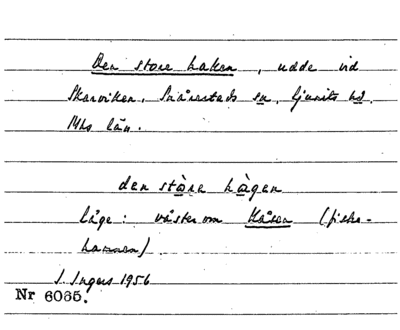 Den store haken, udde vid
Skarviken, Svårestads sn, Ljunits hd.
Mhs län.
den ståre hågen
läge: väster om Kåsen (fiske-
hamnen)
I. Ingers 1956
Nr 6065.